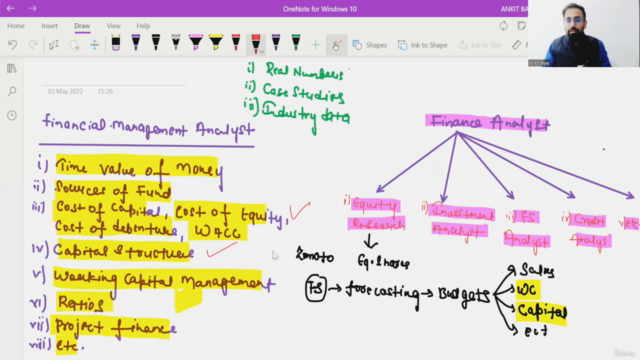 OneNote for Windows 10
ANKIT BA
Home
Insert
Draw
View
Share
Shapes
Ink to Text
03 May 2022
15:26
i) Real Numbers
ii) Case Studies
iii) Industry data
Financial Management Analyst
i) Time value of Money
ii) Sources of Fund
iii) Cost of Capital, Cost of Equity,
Cost of debenture, WACC
iv) Capital Structure
v) Working Capital Management
vi) Ratios
vii) Project finance
viii) etc.
Finance Analyst
i) Equity
Research
ii) Investment
Analyst
iii) FS
Analyst
iv) Credit
Analys
v) etc
Zomato
Eq. Shares
FS → forecasting → Budgets
Sales
WC
Capital
ect